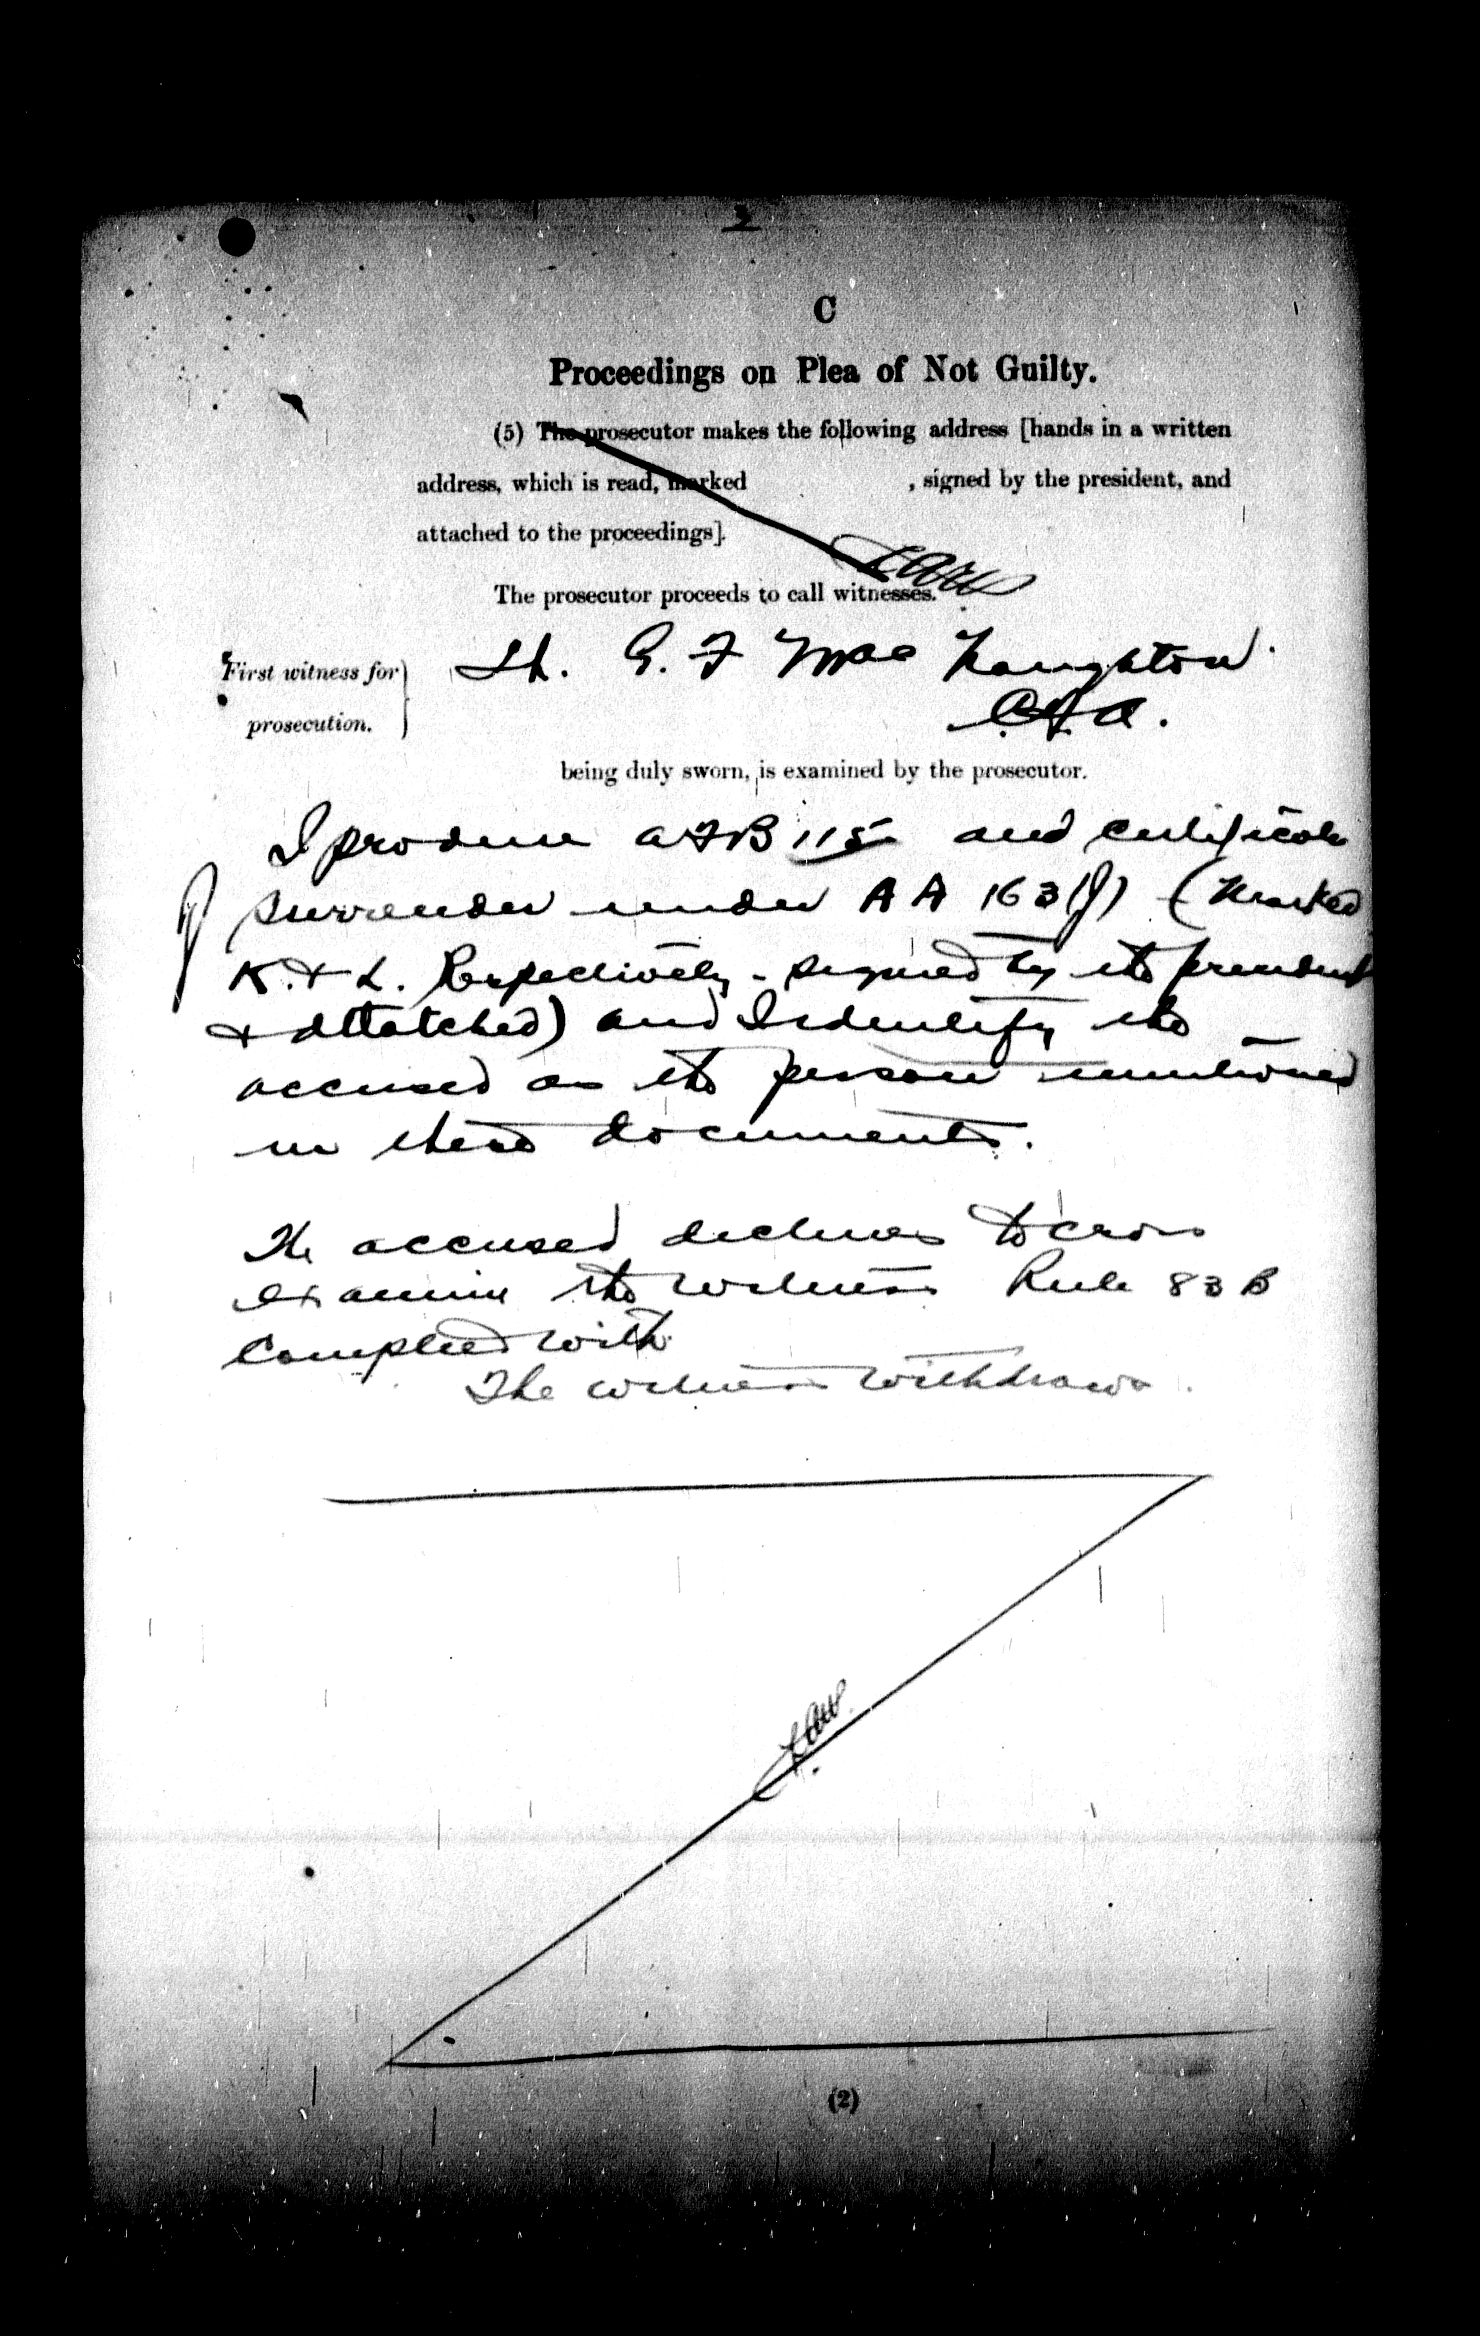 3
C
Proceedings on Plea of Not Guilty.
(5) The prosecutor makes the following address [hands in a written
address, which is read, marked , signed by the president, and
attached to the proceedings].
The prosecutor proceeds to call witnesses.
First witness for
prosecution.
Lt. G. F Mac Naughton
being duly sworn, is examined by the prosecutor.
I produce AFB 115 and certificate
of surrender under AA 163 (J) (Marked
K. & L. Respectively - signed by the president
& attatched) and I identify the
accused as the person mentioned
in these documents.
The accused declines to cross
examine the witness Rule 83 B
Complied with
The witness withdraws.
(2)